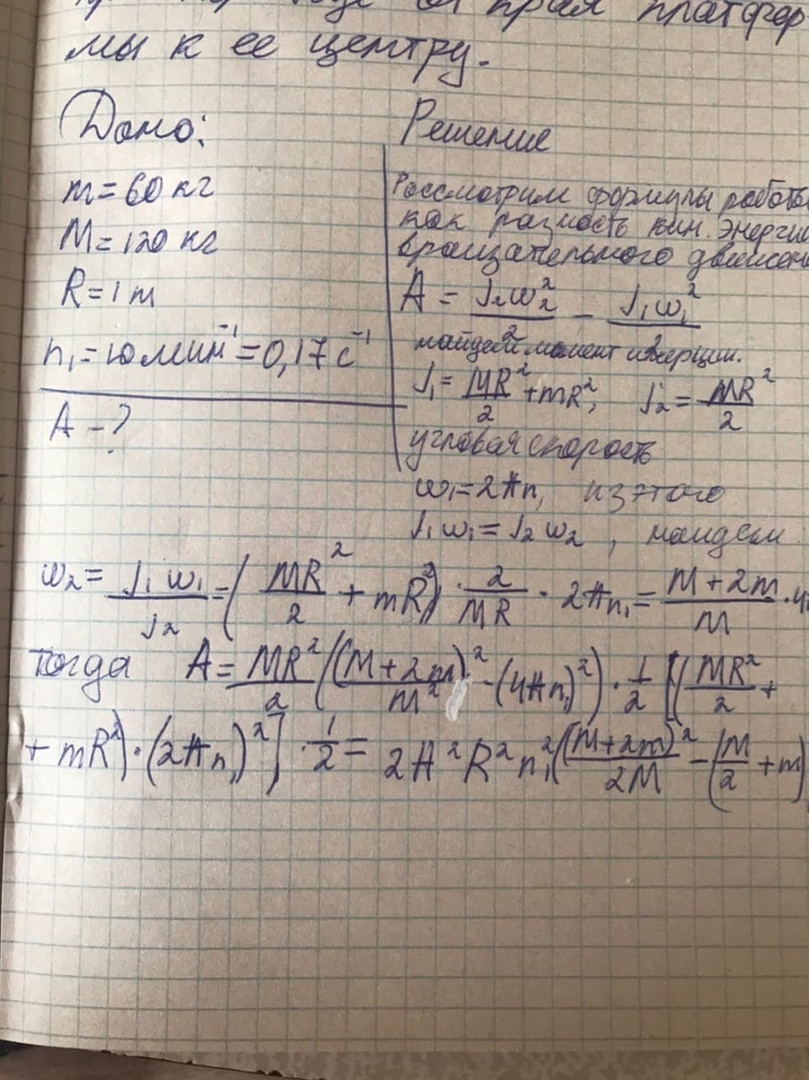 края платфор
мы к ее центру.
Дано:
m = 60 кг
M = 120 кг
R = 1 m
n₁ = 10 мин⁻¹ = 0,17 c⁻¹
A - ?
Решение
Рассмотрим формулы работы
как разность кин. энергии
вращательного движен
A = J₂ω₂²/2 - J₁ω₁²/2
найдем момент инерции.
J₁ = MR²/2 + mR², J₂ = MR²/2
угловая скорость
ω₁ = 2πn, из этого
J₁ω₁ = J₂ω₂, найдем
ω₂ = J₁ω₁/J₂ = (MR²/2 + mR²) · 2/MR · 2πn₁ = M+2m/M ·
тогда A = MR²/2 ((M+2m)²/M² - (4πn₁)²) · 1/2 [(MR²/2 +
+ mR²) · (2πn₁)²] · 1/2 = 2π²R²n₁² ((M+2m)²/2M - (M/2 + m)